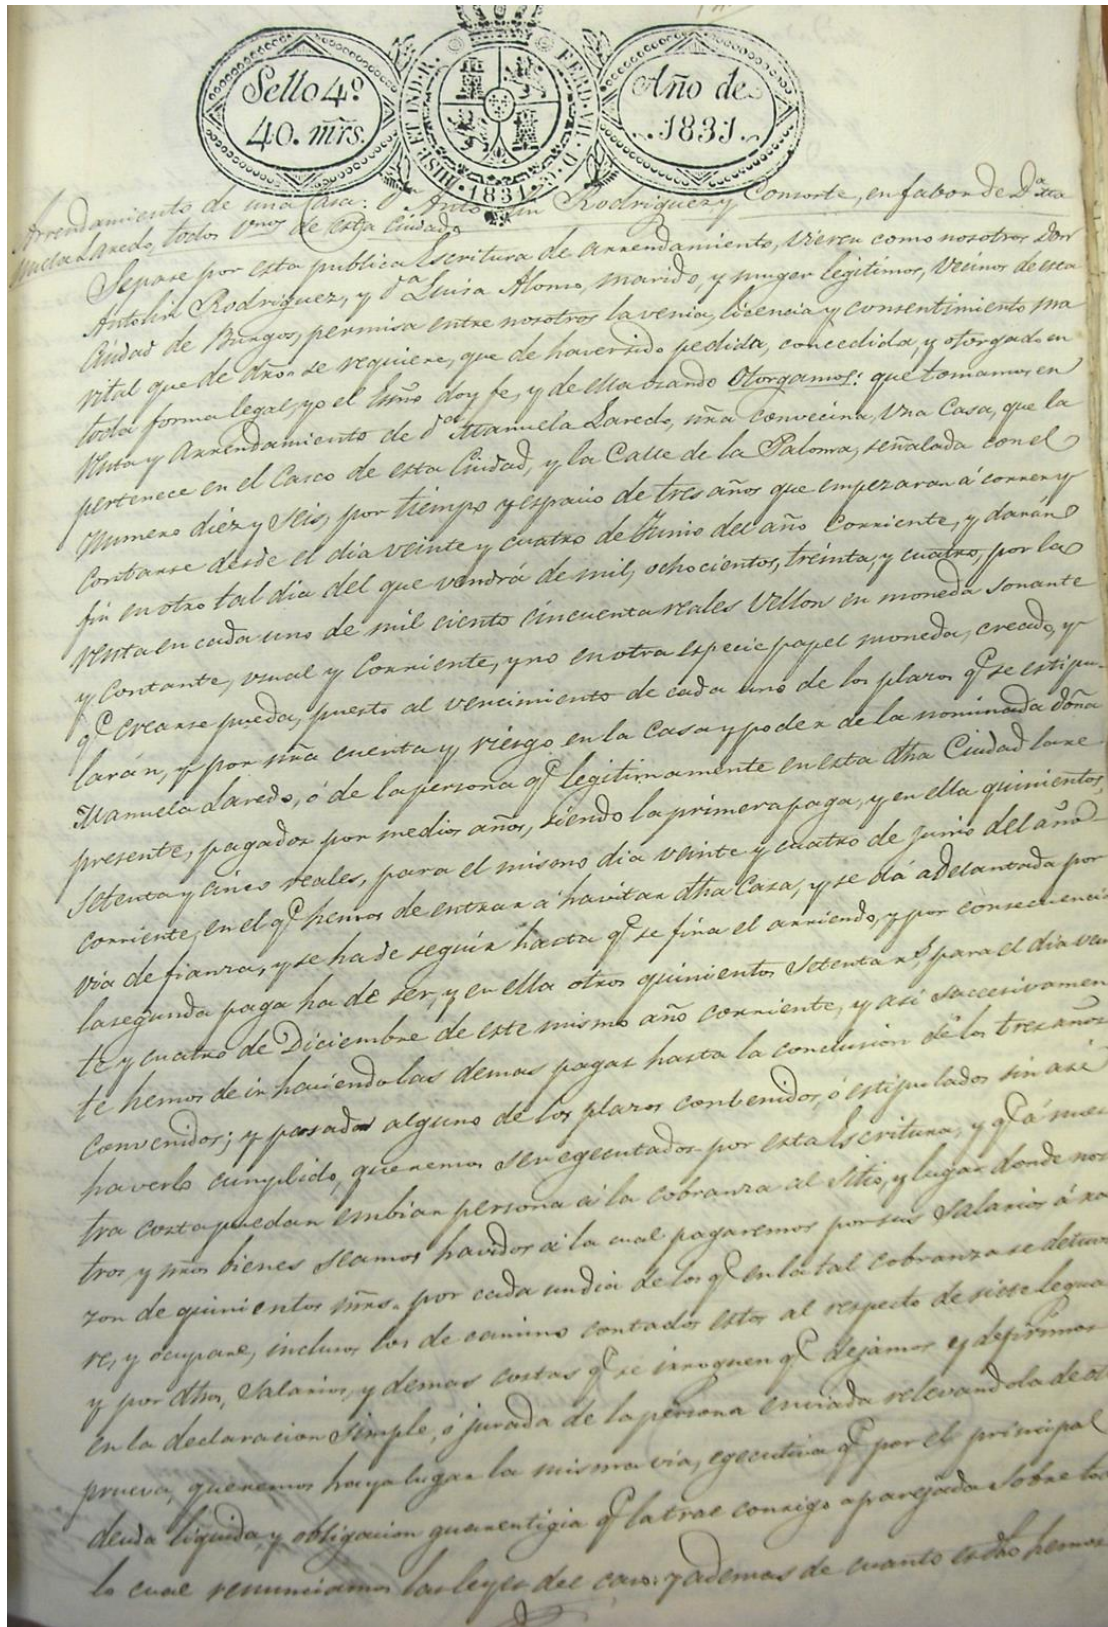 Sello 4º
40. mrs.
HISP. ET IND. R. FERD. VII. D. G. 1831.
Año de
1831.
Arrendamiento de una Casa: Dn Antolin Rodriguez y Consorte, en fabor de Dª Ma
nuela Laredo, todos Vnos de esta Ciudad
Sepase por esta publica Escritura de arrendamiento, vieren como nosotros Don
Antolin Rodriguez, y Dª Luisa Alonso, marido, y muger legitimos, Vecinos de esta
Ciudad de Burgos, permisa entre nosotros la venia, licencia y consentimiento ma
rital que de dro. se requiere, que de haver sido pedida, concedida, y otorgado en
toda forma legal, yo el Esno doy fe, y de ella usando Otorgamos: que tomamos en
Renta y Arrendamiento de Dª Manuela Laredo, nra convecina, Vna Casa, que la
pertenece en el Casco de esta Ciudad, y la Calle de la Paloma, señalada con el
Numero diez y Seis, por tiempo y espacio de tres años que empezaran á correr y
Contarse desde el dia veinte y cuatro de Junio del año Corriente, y darán
fin en otro tal dia del que vendrá de mil, ochocientos, treinta, y cuatro, por la
renta en cada uno de mil ciento cincuenta reales Vellon en moneda sonante
y Contante, usual y Corriente, y no en otra especie papel moneda, creado, y
qe crearse pueda, puesto al vencimiento de cada uno de los plazos qe se estipu-
larán, y por nra cuenta y riesgo en la Casa y poder de la nominada doña
Manuela Laredo, ó de la persona qe legitimamente en esta dha Ciudad la re-
presente, pagados por medios años, siendo la primera paga, y en ella quinientos,
Setenta y cinco reales, para el mismo dia veinte y cuatro de junio del año-
corriente, en el qe hemos de entrar á havitar dha Casa, y se dá adelantada por
via de fianza, y se ha de seguir hasta qe se fina el arriendo, y por consecuencia
la segunda paga ha de ser, y en ella otros quinientos Setenta rs, para el dia vein
te y cuatro de Diciembre de este mismo año corriente, y asi succesivamen
te hemos de ir haciendo las demas pagas hasta la conclusion de los tres años
Convenidos; y pasado alguno de los plazos contenidos, ó estipulados sin asi
haverlo cumplido, queremos ser egecutados por esta Escritura, y qe á nues
tra costa puedan embiar persona á la cobranza al Sitio, y lugar donde noso
tros, y nros bienes seamos havidos á la cual pagaremos por sus Salarios á ra
zon de quinientos mrs. por cada un dia de los qe en la tal cobranza se detuvie
re, y ocupare, inclusos los de camino contados estos al respecto de siete leguas
y por dhos, Salarios, y demas costas qe se irroguen qe dejamos y deferimos
en la declaracion Simple, ó jurada de la persona enviada relevandola de otra
prueva, queremos haya lugar la misma via, egecutiva qe por el principal
deuda liquida, y obligacion guarentigia qe la trae consigo aparejada sobre todo
lo cual renunciamos las leyes del caso: y ademas de cuanto es dho hemos